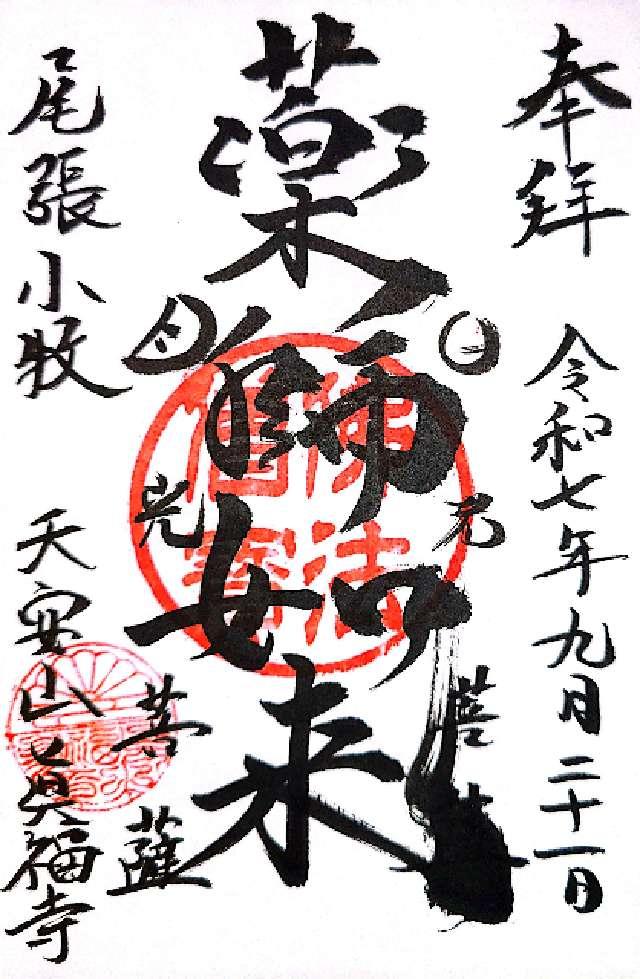 奉拝
令和七年九月二十一日
日光菩薩
薬師如来
月光菩薩
尾張小牧
天安山真福寺
佛法僧寳